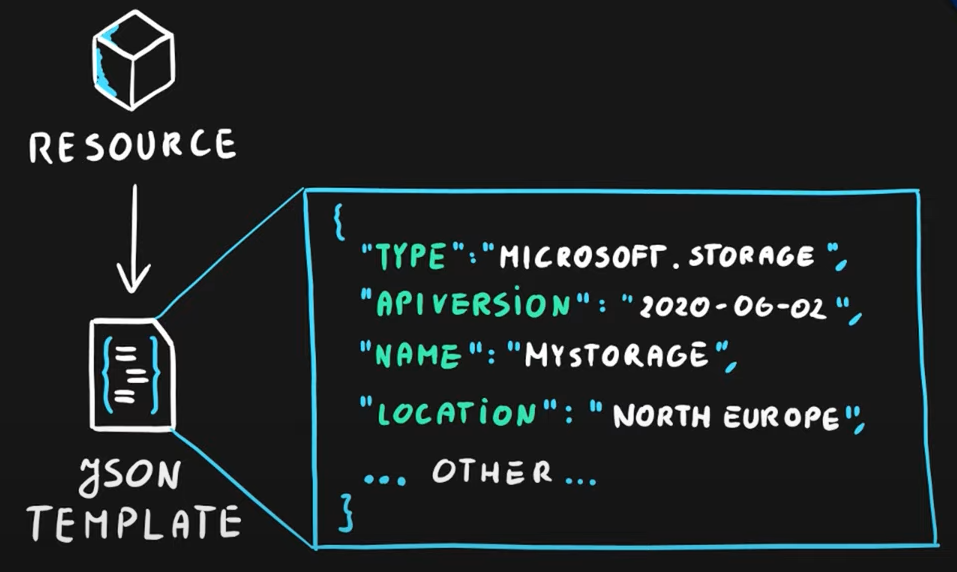 RESOURCE
JSON
TEMPLATE
{
"TYPE":"MICROSOFT.STORAGE",
"APIVERSION":"2020-06-02",
"NAME":"MYSTORAGE",
"LOCATION":"NORTH EUROPE",
... OTHER ...
}